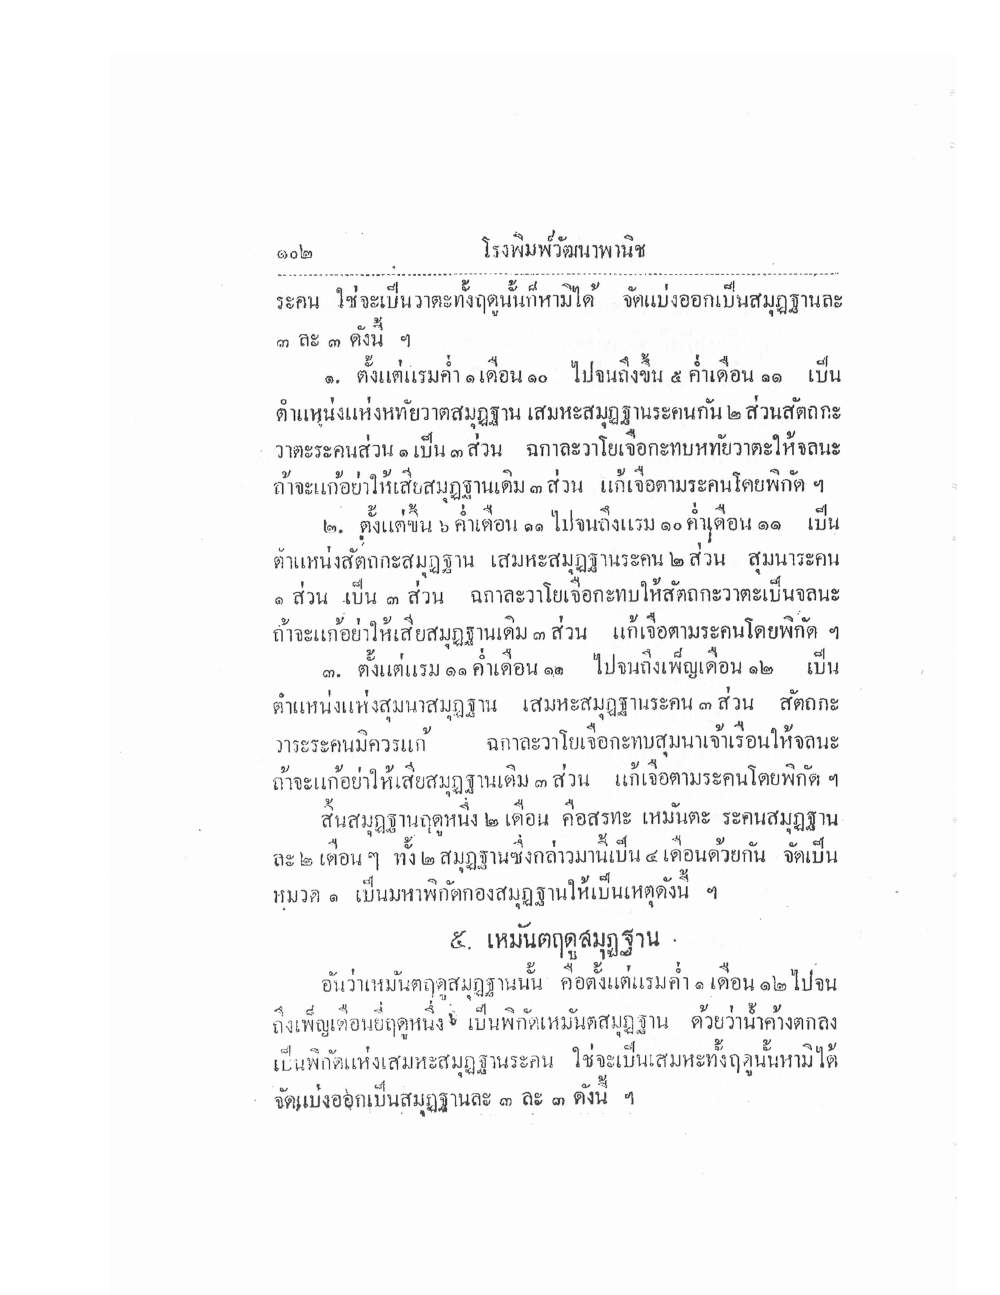 ๑๐๒ โรงพิมพ์วัฒนาพานิช
ระคน ใช่จะเป็นวาตะทั้งฤดูนั้นก็หามิได้ จัดแบ่งออกเป็นสมุฏฐานละ
๓ ละ ๓ ดังนี้ ฯ
๑. ตั้งแต่แรมค่ำ ๑ เดือน ๑๐ ไปจนถึงขึ้น ๕ ค่ำเดือน ๑๑ เป็น
ตำแหน่งแห่งหทัยวาตสมุฏฐาน เสมหะสมุฏฐานระคนกัน ๒ ส่วนสัตถกะ
วาตะระคนส่วน ๑ เป็น ๓ ส่วน ฉกาละวาโยเจือกะทบหทัยวาตะให้จลนะ
ถ้าจะแก้อย่าให้เสียสมุฏฐานเดิม ๓ ส่วน แก้เจือตามระคนโดยพิกัด ฯ
๒. ตั้งแต่ขึ้น ๖ ค่ำเดือน ๑๑ ไปจนถึงแรม ๑๐ ค่ำเดือน ๑๑ เป็น
ตำแหน่งสัตถกะสมุฏฐาน เสมหะสมุฏฐานระคน ๒ ส่วน สุมนาระคน
๑ ส่วน เป็น ๓ ส่วน ฉกาละวาโยเจือกะทบให้สัตถกะวาตะเป็นจลนะ
ถ้าจะแก้อย่าให้เสียสมุฏฐานเดิม ๓ ส่วน แก้เจือตามระคนโดยพิกัด ฯ
๓. ตั้งแต่แรม ๑๑ ค่ำเดือน ๑๑ ไปจนถึงเพ็ญเดือน ๑๒ เป็น
ตำแหน่งแห่งสุมนาสมุฏฐาน เสมหะสมุฏฐานระคน ๓ ส่วน สัตถกะ
วาระระคนมิควรแก้ ฉกาละวาโยเจือกะทบสุมนาเจ้าเรือนให้จลนะ
ถ้าจะแก้อย่าให้เสียสมุฏฐานเดิม ๓ ส่วน แก้เจือตามระคนโดยพิกัด ฯ
สิ้นสมุฏฐานฤดูหนึ่ง ๒ เดือน คือสรทะ เหมันตะ ระคนสมุฏฐาน
ละ ๒ เดือน ๆ ทั้ง ๒ สมุฏฐานซึ่งกล่าวมานี้เป็น ๔ เดือนด้วยกัน จัดเป็น
หมวด ๑ เป็นมหาพิกัดกองสมุฏฐานให้เป็นเหตุดังนี้ ฯ
๕. เหมันตฤดูสมุฏฐาน
อันว่าเหมันตฤดูสมุฏฐานนั้น คือตั้งแต่แรมค่ำ ๑ เดือน ๑๒ ไปจน
ถึงเพ็ญเดือนยี่ฤดูหนึ่ง เป็นพิกัดเหมันตสมุฏฐาน ด้วยว่าน้ำค้างตกลง
เป็นพิกัดแห่งเสมหะสมุฏฐานระคน ใช่จะเป็นเสมหะทั้งฤดูนั้นหามิได้
จัดแบ่งออกเป็นสมุฏฐานละ ๓ ละ ๓ ดังนี้ ฯ